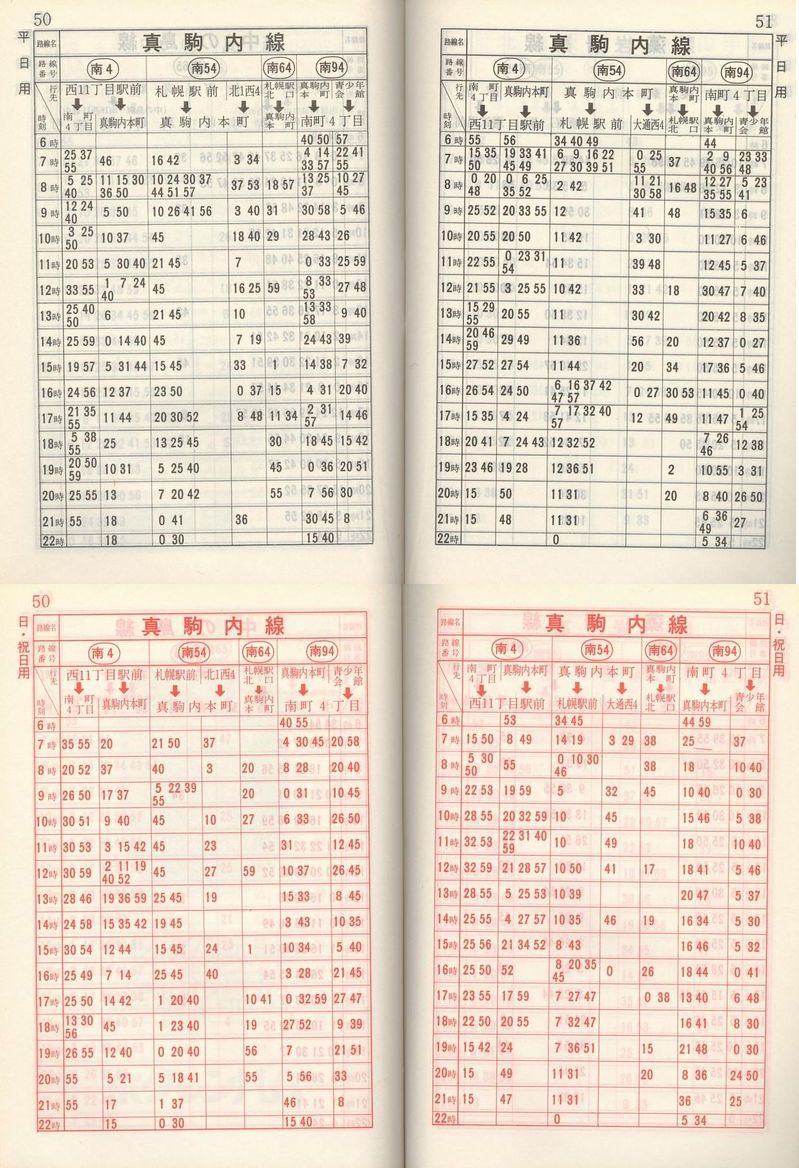 50
平日用
路線名 真駒内線
路線番号 南4 南54 南64 南94
行先 西11丁目駅前 札幌駅前 北1西4 札幌駅北口 真駒内本町 青少年会館
時刻 南町4丁目 真駒内本町 真駒内本町 真駒内本町 南町4丁目
6時 40 50 57
7時 25 37 55 46 16 42 3 34 4 14 33 57 22 41 55
8時 5 25 40 11 15 30 36 50 10 24 30 37 44 51 57 37 53 18 57 13 25 37 10 27 45
9時 12 24 40 5 50 10 26 41 56 3 40 31 30 58 5 46
10時 3 25 50 10 37 45 18 40 29 28 43 26
11時 20 53 5 30 40 21 45 7 0 33 25 59
12時 33 55 1 7 24 40 45 16 25 59 8 33 53 27 48
13時 25 40 50 6 21 45 10 13 33 58 9 40
14時 25 59 0 14 40 45 7 19 24 43 39
15時 19 57 5 31 44 15 45 33 1 14 38 7 32
16時 24 56 12 37 23 50 0 37 15 4 31 20 40
17時 21 35 55 11 44 20 30 52 8 48 11 34 2 31 57 14 46
18時 5 38 55 25 13 25 45 30 18 45 15 42
19時 20 50 59 10 31 5 25 40 45 0 36 20 51
20時 25 55 13 7 20 42 55 7 56 30
21時 55 18 0 41 36 30 45 8
22時 18 0 30 15 40
51
平日用
路線名 真駒内線
路線番号 南4 南54 南64 南94
行先 南町4丁目 真駒内本町 真駒内本町 真駒内本町 南町4丁目
時刻 西11丁目駅前 札幌駅前 大通西4 札幌駅北口 真駒内本町 青少年会館
6時 55 56 34 40 49 44
7時 15 35 50 19 33 41 45 49 6 9 16 22 27 30 39 51 0 25 55 37 2 9 40 56 23 33 48
8時 0 20 48 0 6 25 35 52 2 42 11 21 30 58 16 48 12 27 35 55 5 23 41
9時 25 52 20 33 55 12 41 48 15 35 6
10時 20 55 20 50 11 42 3 30 11 27 6 46
11時 22 55 0 23 31 54 11 39 48 12 45 5 37
12時 21 55 3 25 55 10 42 33 18 30 47 7 40
13時 15 29 55 20 55 11 30 42 20 42 8 35
14時 20 46 59 29 49 11 36 56 20 12 37 0 27
15時 27 52 27 54 11 44 20 34 17 36 5 46
16時 26 54 24 50 6 16 37 42 47 57 0 27 30 53 11 45 0 40
17時 15 35 4 24 7 17 32 40 57 12 49 11 47 1 25 54
18時 20 41 7 24 43 12 32 52 7 26 46 12 38
19時 23 46 19 28 12 36 51 2 10 55 3 31
20時 15 50 11 31 20 8 40 26 50
21時 15 48 11 31 6 36 49 27
22時 0 5 34
50
日・祝日用
路線名 真駒内線
路線番号 南4 南54 南64 南94
行先 西11丁目駅前 札幌駅前 北1西4 札幌駅北口 真駒内本町 青少年会館
時刻 南町4丁目 真駒内本町 真駒内本町 真駒内本町 南町4丁目
6時 40 55
7時 35 55 20 21 50 37 4 30 45 20 58
8時 20 52 37 40 3 20 8 28 20 40
9時 26 50 17 37 5 22 39 55 20 0 31 10 45
10時 30 51 9 40 45 10 27 6 33 26 50
11時 30 53 3 15 42 45 23 31 12 45
12時 30 59 2 11 19 40 52 45 27 59 10 37 26 45
13時 28 46 19 36 59 25 45 19 15 33 8 45
14時 24 58 15 35 42 19 45 3 43 10 35
15時 30 54 12 44 15 45 24 1 10 34 5 40
16時 25 49 7 14 25 45 40 3 28 21 45
17時 25 50 14 42 1 20 40 10 41 0 32 59 27 47
18時 13 30 56 45 1 23 40 19 27 52 9 39
19時 26 55 12 40 0 20 40 56 7 21 51
20時 55 5 21 5 18 41 55 5 56 33
21時 55 17 1 37 46 8
22時 15 0 30 15 40
51
日・祝日用
路線名 真駒内線
路線番号 南4 南54 南64 南94
行先 南町4丁目 真駒内本町 真駒内本町 真駒内本町 南町4丁目
時刻 西11丁目駅前 札幌駅前 大通西4 札幌駅北口 真駒内本町 青少年会館
6時 53 34 45 44 59
7時 15 50 8 49 14 19 3 29 38 25 37
8時 5 30 50 55 0 10 30 46 38 18 10 40
9時 22 53 19 59 5 32 45 10 40 0 30
10時 28 55 20 32 59 10 45 15 46 5 38
11時 32 53 22 31 40 59 10 49 18 10 40
12時 32 59 21 28 57 10 50 41 17 18 41 5 46
13時 28 55 5 25 53 10 39 20 47 5 37
14時 25 55 4 27 57 10 35 46 19 16 34 5 30
15時 25 56 21 34 52 8 43 16 46 5 32
16時 25 50 52 8 20 35 45 0 26 18 44 0 41
17時 23 55 17 59 7 27 47 0 38 13 40 6 48
18時 22 50 20 55 7 32 47 16 41 8 30
19時 15 42 24 7 36 51 15 21 48 0 30
20時 15 49 11 31 20 8 36 24 50
21時 15 47 11 31 36 25
22時 0 5 34